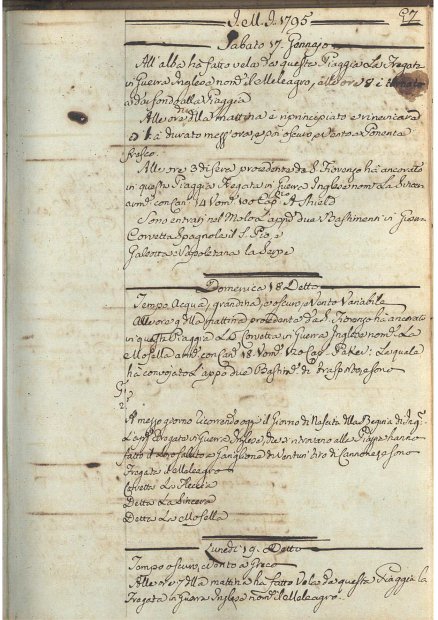 J. M. J. 1795
27
Sabato 17. Gennajo
All'alba hà fatto vela da questa Piaggia La Fregata
di Guerra Inglese nom.ta il Meleagro, alle ore 8 è tornata
a dar fondo alla Piaggia
Alle ore della mattina è principiato e nevicare
e hà durato mezz'ora, e poi oscuro e Vento a Ponente
fresco.
Alle ore 3 di sera procedente da S. Fiorenzo hà ancorato
in questa Piaggia Fregata di Guerra Inglese nom.ta La
arm.ta con Can.i 14 Uom.i 100 Cap.o A Shield
Sono entrati nel Molo L'app.o due Bastimenti di Guerra
Corvetta Spagnola il S. Pio, e
Galeotta Napoletana la Serpe
Domenica 18 Detto
Tempo Acqua, grandine, e oscuro, e Vento Variabile
Alle ore 9 della mattina procedente da S. Fiorenzo hà ancorato
in questa Piaggia La Corvetta di Guerra Inglese nom.ta La
Mosella arm.ta con Can.i 18 Uom.i 120 Cap. La quale
hà convojato L'app.o due Bastim.ti di trasporto, e sono
A mezzo giorno ricorrendo oggi il Giorno di Nascita della Regina di Ing.a
Fregate di Guerra Inglese, che si trovano alla Piaggia hanno
fatto il loro saluto a Tiro di Cannone, e sono
Fregata Il Meleagro
Corvetta La Flecia
Detta La Sincera
Detta La Mosella
Lunedì 19. Detto
Tempo oscuro, Vento a Greco
Alle ore 7 della mattina hà fatto Vela da questa Piaggia la
Fregata di Guerra Inglese nom.ta il Meleagro.